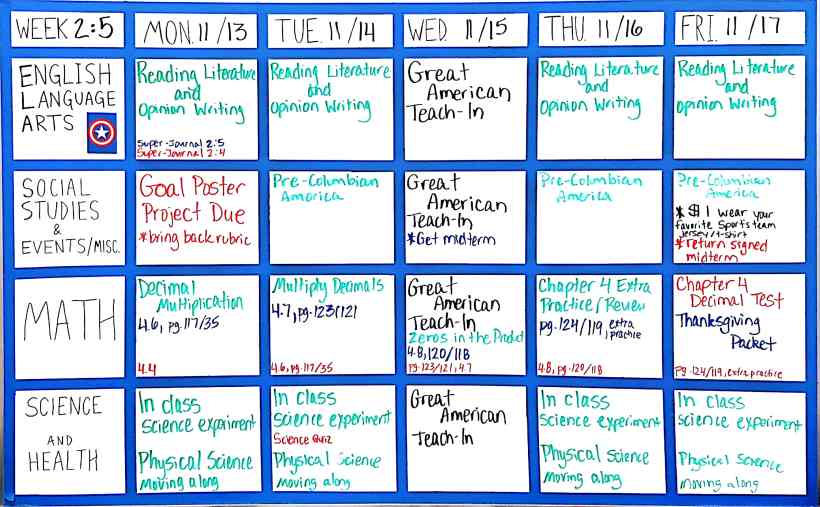 WEEK 2:5
MON. 11/13
TUE. 11/14
WED. 11/15
THU. 11/16
FRI. 11/17
ENGLISH
LANGUAGE
ARTS
Reading Literature
and
Opinion Writing
Super-Journal 2:5
Super-Journal 2:4
Reading Literature
and
Opinion Writing
Great
American
Teach-In
Reading Literature
and
Opinion Writing
Reading Literature
and
Opinion Writing
SOCIAL
STUDIES
&
EVENTS/MISC.
Goal Poster
Project Due
*bring back rubric
Pre-Columbian
America
Great
American
Teach-In
*Get midterm
Pre-Columbian
America
Pre-Columbian
America
* $1 wear your
favorite Sports team
jersey/t-shirt
*return signed
midterm
MATH
Decimal
Multiplication
4.6, pg. 117/35
4.4
Multiply Decimals
4.7, pg. 123/121
4.6, pg. 117/35
Great
American
Teach-In
Zeros in the Product
4.8, 120/118
pg. 123/121, 4.7
Chapter 4 Extra
Practice/Review
pg. 124/119, extra
practice
4.8, pg. 120/118
Chapter 4
Decimal Test
Thanksgiving
Packet
pg. 124/119, extra practice
SCIENCE
AND
HEALTH
In class
science experiment
Physical Science
Moving along
In class
science experiment
Science Quiz
Physical Science
Moving along
Great
American
Teach-In
In class
science experiment
Physical Science
Moving along
In class
science experiment
Physical Science
Moving along